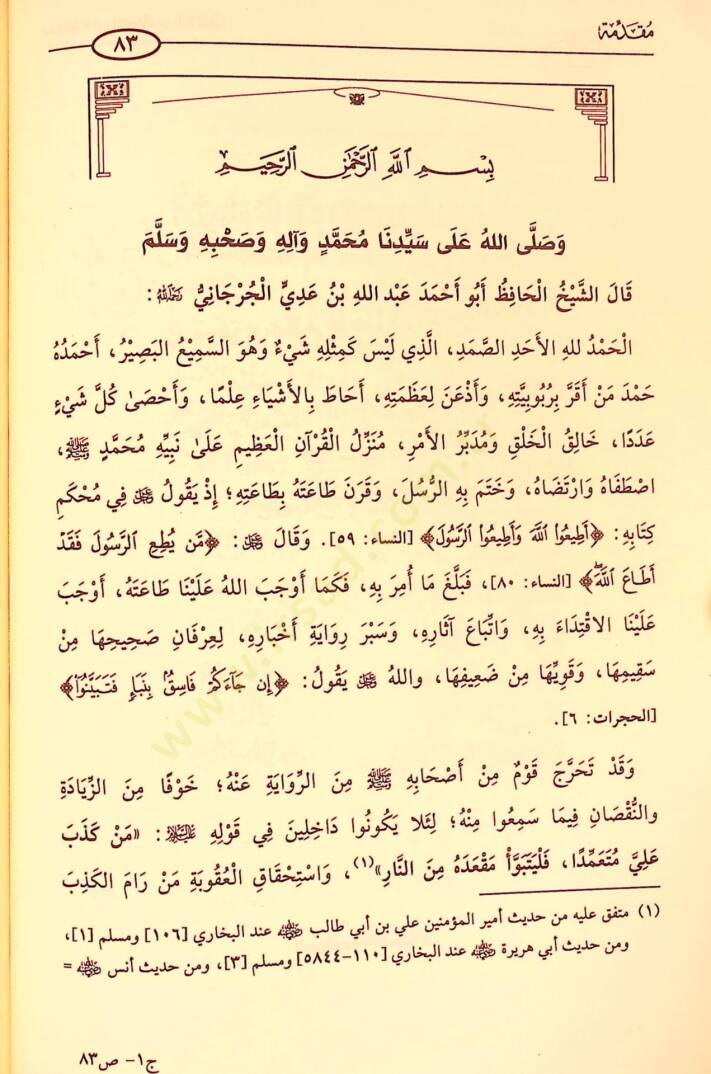 مُقَدِّمَة
٨٣
بِسْمِ ٱللَّهِ ٱلرَّحْمَٰنِ ٱلرَّحِيمِ
وَصَلَّى اللهُ عَلَى سَيِّدِنَا مُحَمَّدٍ وَآلِهِ وَصَحْبِهِ وَسَلَّمَ
قَالَ الشَّيْخُ الْحَافِظُ أَبُو أَحْمَدَ عَبْدُ اللهِ بْنُ عَدِيٍّ الْجُرْجَانِيُّ رَحِمَهُ اللهُ:
الْحَمْدُ للهِ الأَحَدِ الصَّمَدِ، الَّذِي لَيْسَ كَمِثْلِهِ شَيْءٌ وَهُوَ السَّمِيعُ البَصِيرُ، أَحْمَدُهُ
حَمْدَ مَنْ أَقَرَّ بِرُبُوبِيَّتِهِ، وَأَذْعَنَ لِعَظَمَتِهِ، أَحَاطَ بِالأَشْيَاءِ عِلْمًا، وَأَحْصَىٰ كُلَّ شَيْءٍ
عَدَدًا، خَالِقُ الْخَلْقِ وَمُدَبِّرُ الأَمْرِ، مُنَزِّلُ الْقُرْآنِ الْعَظِيمِ عَلَىٰ نَبِيِّهِ مُحَمَّدٍ ﷺ،
اصْطَفَاهُ وَارْتَضَاهُ، وَخَتَمَ بِهِ الرُّسُلَ، وَقَرَنَ طَاعَتَهُ بِطَاعَتِهِ؛ إِذْ يَقُولُ ﷻ فِي مُحْكَمِ
كِتَابِهِ: ﴿أَطِيعُوا۟ ٱللَّهَ وَأَطِيعُوا۟ ٱلرَّسُولَ﴾ [النساء: ٥٩]. وَقَالَ ﷻ: ﴿مَّن يُطِعِ ٱلرَّسُولَ فَقَدْ
أَطَاعَ ٱللَّهَۖ﴾ [النساء: ٨٠]، فَبَلَّغَ مَا أُمِرَ بِهِ، فَكَمَا أَوْجَبَ اللهُ عَلَيْنَا طَاعَتَهُ، أَوْجَبَ
عَلَيْنَا الاقْتِدَاءَ بِهِ، وَاتِّبَاعَ آثَارِهِ، وَسَبْرَ رِوَايَةِ أَخْبَارِهِ، لِعِرْفَانِ صَحِيحِهَا مِنْ
سَقِيمِهَا، وَقَوِيِّهَا مِنْ ضَعِيفِهَا، واللهُ ﷻ يَقُولُ: ﴿إِن جَآءَكُمْ فَاسِقٌۢ بِنَبَإٍ فَتَبَيَّنُوٓا۟﴾
[الحجرات: ٦].
وَقَدْ تَحَرَّجَ قَوْمٌ مِنْ أَصْحَابِهِ ﷺ مِنَ الرِّوَايَةِ عَنْهُ؛ خَوْفًا مِنَ الزِّيَادَةِ
والنُّقْصَانِ فِيمَا سَمِعُوا مِنْهُ؛ لِئَلا يَكُونُوا دَاخِلِينَ فِي قَوْلِهِ عليه السلام: «مَنْ كَذَبَ
عَلَيَّ مُتَعَمِّدًا، فَلْيَتَبَوَّأْ مَقْعَدَهُ مِنَ النَّارِ»(١)، وَاسْتِحْقَاقِ الْعُقُوبَةِ مَنْ رَامَ الكَذِبَ
(١) متفق عليه من حديث أمير المؤمنين علي بن أبي طالب رضي الله عنه عند البخاري [١٠٦] ومسلم [١]،
ومن حديث أبي هريرة رضي الله عنه عند البخاري [١١٠-٥٨٤٤] ومسلم [٣]، ومن حديث أنس رضي الله عنه =
ج١- ص٨٣